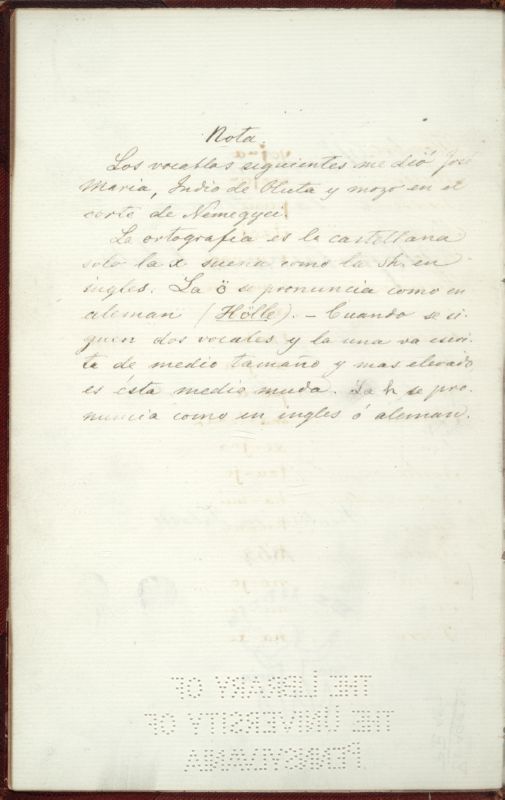 Nota
Los vocablos siguientes me dió José
Maria, Indio de Oluta y mozo en el
corte de Nemegyei.
La ortografía es la castellana
solo la x suena como la sh en
ingles. La ö se pronuncia como en
aleman (Hölle). – Cuando se si-
guen dos vocales y la una va escri-
ta de medio tamaño y mas elevado
es ésta medio muda. La h se pro-
nuncia como en ingles ó aleman.
THE LIBRARY OF
THE UNIVERSITY OF
PENNSYLVANIA